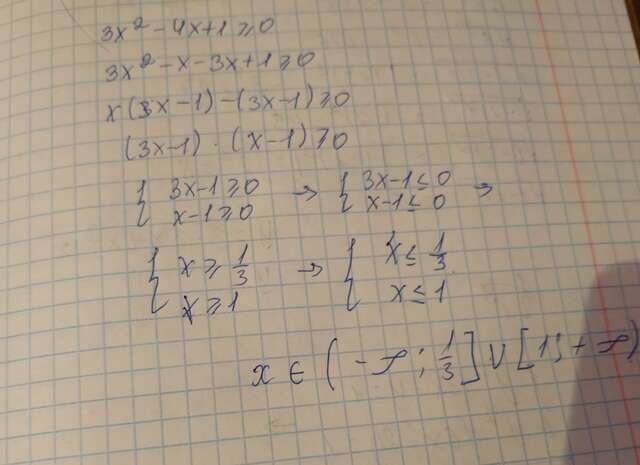 3x² - 4x + 1 ≥ 0
3x² - x - 3x + 1 ≥ 0
x (3x - 1) - (3x - 1) ≥ 0
(3x - 1) · (x - 1) ≥ 0
{ 3x - 1 ≥ 0 → { 3x - 1 ≤ 0 →
x - 1 ≥ 0 x - 1 ≤ 0
{ x ≥ 1/3 → { x ≤ 1/3
x ≥ 1 x ≤ 1
x ∈ (-∞; 1/3] ∪ [1; +∞)